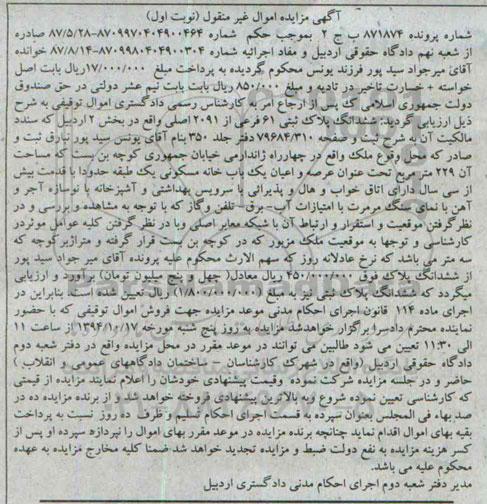 آگهی مزایده اموال غیر منقول (نوبت اول)
شماره پرونده ۸۷۱۸۷۴ ب ج ۲ بموجب حکم شماره ۸۷۰۹۹۷۰۴۰۴۹۰۰۴۶۴-۸۷/۵/۲۸ صادره
از شعبه نهم دادگاه حقوقی اردبیل و مفاد اجرائیه شماره ۸۷۰۹۹۸۰۴۰۴۹۰۰۳۰۴-۸۷/۸/۱۴ خوانده
آقای میرجواد سید پور فرزند یونس محکوم گردیده به پرداخت مبلغ ۱۷/۰۰۰/۰۰۰ریال بابت اصل
خواسته + خسارت تاخیر در تادیه و مبلغ ۸۵۰/۰۰۰ ریال بابت بابت نیم عشر دولتی در حق صندوق
دولت جمهوری اسلامی که پس از ارجاع امر به کارشناس رسمی دادگستری اموال توقیفی به شرح
ذیل ارزیابی گردید: ششدانگ پلاک ثبتی ۶۱ فرعی از ۲۰۹۱ اصلی واقع در بخش ۲ اردبیل که سندد
مالکیت آن به شرح ثبت و صفحه ۷۹۶۸۴/۳۱۰ دفتر جلد ۳۵۰ بنام آقای یونس سید پور نیارق ثبت و
صادر که محل وقوع ملک واقع در چهارراه ژاندارمی خیابان جمهوری کوچه بن بست که مساحت
آن ۲۲۹ متر مربع تحت عنوان عرصه و اعیان یک باب خانه مسکونی یک طبقه حدودا با قدمت بیش
از سی سال دارای اتاق خواب و هال و پذیرائی با سرویس بهداشتی و آشپزخانه با نوسازه آجر و
آهن با نمای سنگ مرمرت با امتیازات آب-برق-تلفن وگاز که با توجه به مشاهده و بررسی و در
نظرگرفتن موقعیت و استقرار و ارتباط آن با شبکه معابر اصلی وبا در نظر گرفتن کلیه عوامل موثردر
کارشناسی و توجها به موقعیت ملک مزبور که در کوچه بن بست قرار گرفته و متراژبرکوچه که
سه متر می باشد که نرخ عادلانه روز که سهم الارث محکوم علیه پرونده آقای میر جواد سید پور
از ششدانگ پلاک فوق ۴۵۰/۰۰۰/۰۰۰ ریال معادل( چهل و پنج میلیون تومان) برآورد و ارزیابی
میگردد که ششدانگ پلاک ثبتی نیز به مبلغ (۱/۸۰۰/۰۰۰/۰۰۰) ریال تعیین شده است. بنابراین در
اجرای ماده ۱۱۴ قانون اجرای احکام مدنی موعد مزایده جهت فروش اموال توقیفی که با حضور
نماینده محترم دادسرا برگزار خواهدشد مزایده به روز پنج شنبه مورخه ۱۳۹۴/۱۰/۱۷ از ساعت ۱۱
الی ۱۱:۳۰ تعیین می شود طالبین می توانند در موعد مقرر در محل مزایده واقع در دفتر شعبه دوم
دادگاه حقوقی اردبیل (واقع در شهرک کارشناسان - ساختمان دادگاههای عمومی و انقلاب )
حاضر و در جلسه مزایده شرکت نموده وقیمت پیشنهادی خودشان را اعلام نمایند مزایده از قیمتی
که کارشناسی تعیین نموده شروع وبه بالاترین پیشنهادی فروخته خواهد شد و از برنده مزایده ده در
صد بهاء فی المجلس بعنوان سپرده به قسمت اجرای احکام تسلیم و ظرف ده روز نسبت به پرداخت
بقیه بهای اموال اقدام نماید چنانچه برنده مزایده در موعد مقرر بهای اموال را نپردازد سپرده او پس از
کسر هزینه مزایده به نفع دولت ضبط و مزایده تجدید خواهد شد ضمنا کلیه مخارج مزایده به عهده
محکوم علیه می باشد.
مدیر دفتر شعبه دوم اجرای احکام مدنی دادگستری اردبیل